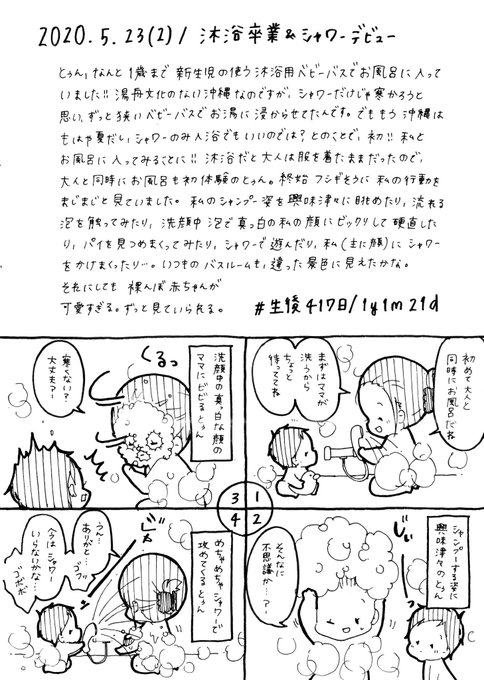 2020.5.23(土)/ 沐浴卒業&シャワーデビュー
とぅん、なんと1歳まで新生児の使う沐浴用ベビーバスでお風呂に入って
いました!! 湯舟文化のない沖縄なのですが、シャワーだけじゃ寒かろうと
思い、ずっと狭いベビーバスでお湯に浸からせてたんです。でももう沖縄は
もはや夏だし、シャワーのみ入浴でもいいのでは?とのことで、初!!私と
お風呂に入ってみることに!! 沐浴だと大人は服を着たままだったので、
大人と同時にお風呂も初体験のとぅん。終始フシギそうに私の行動を
まじまじと見ていました。私のシャンプー姿を興味津々に眺めたり、流れる
泡を触ってみたり、洗顔中泡で真っ白の私の顔にビックリして硬直した
り、パイを見つめまくってみたり、シャワーで遊んだり、私(主に顔)にシャワー
をかけまくったり…。いつものバスルームも、違った景色に見えたかな。
それにしても裸んぼ赤ちゃんが
可愛すぎる。ずっと見ていられる。
#生後417日/1y1m21d
初めて大人と
同時にお風呂だね
まずはママが
洗うから
ちょっと
待っててね
1
シャンプーする姿に
興味津々のとぅん
じぃ
そんなに
不思議か…?
2
くるっ
洗顔中の真っ白な顔の
ママにビビるとぅん
寒くない?
大丈夫?
3
めちゃめちゃシャワーで
攻めてくるとぅん
うん…
ありがと…
ゴフッ
ママはシャワー
いらないかな…
ゴボボ
4